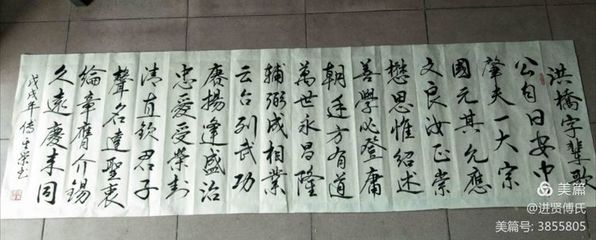 洪橋字輩歌
公自日安中
肇夫一大宗
國元其允應
文良汝正崇
懋思惟紹述
善學必登庸
朝廷方有道
萬世永昌隆
輔弼成相業
云台列武功
賡揚逢盛治
忠愛受榮封
清直欽君子
聲名達聖衷
綸章膺介錫
久遠慶來同
戊戌年傅生榮書
美篇
@进贤傅氏
美篇号: 3855805